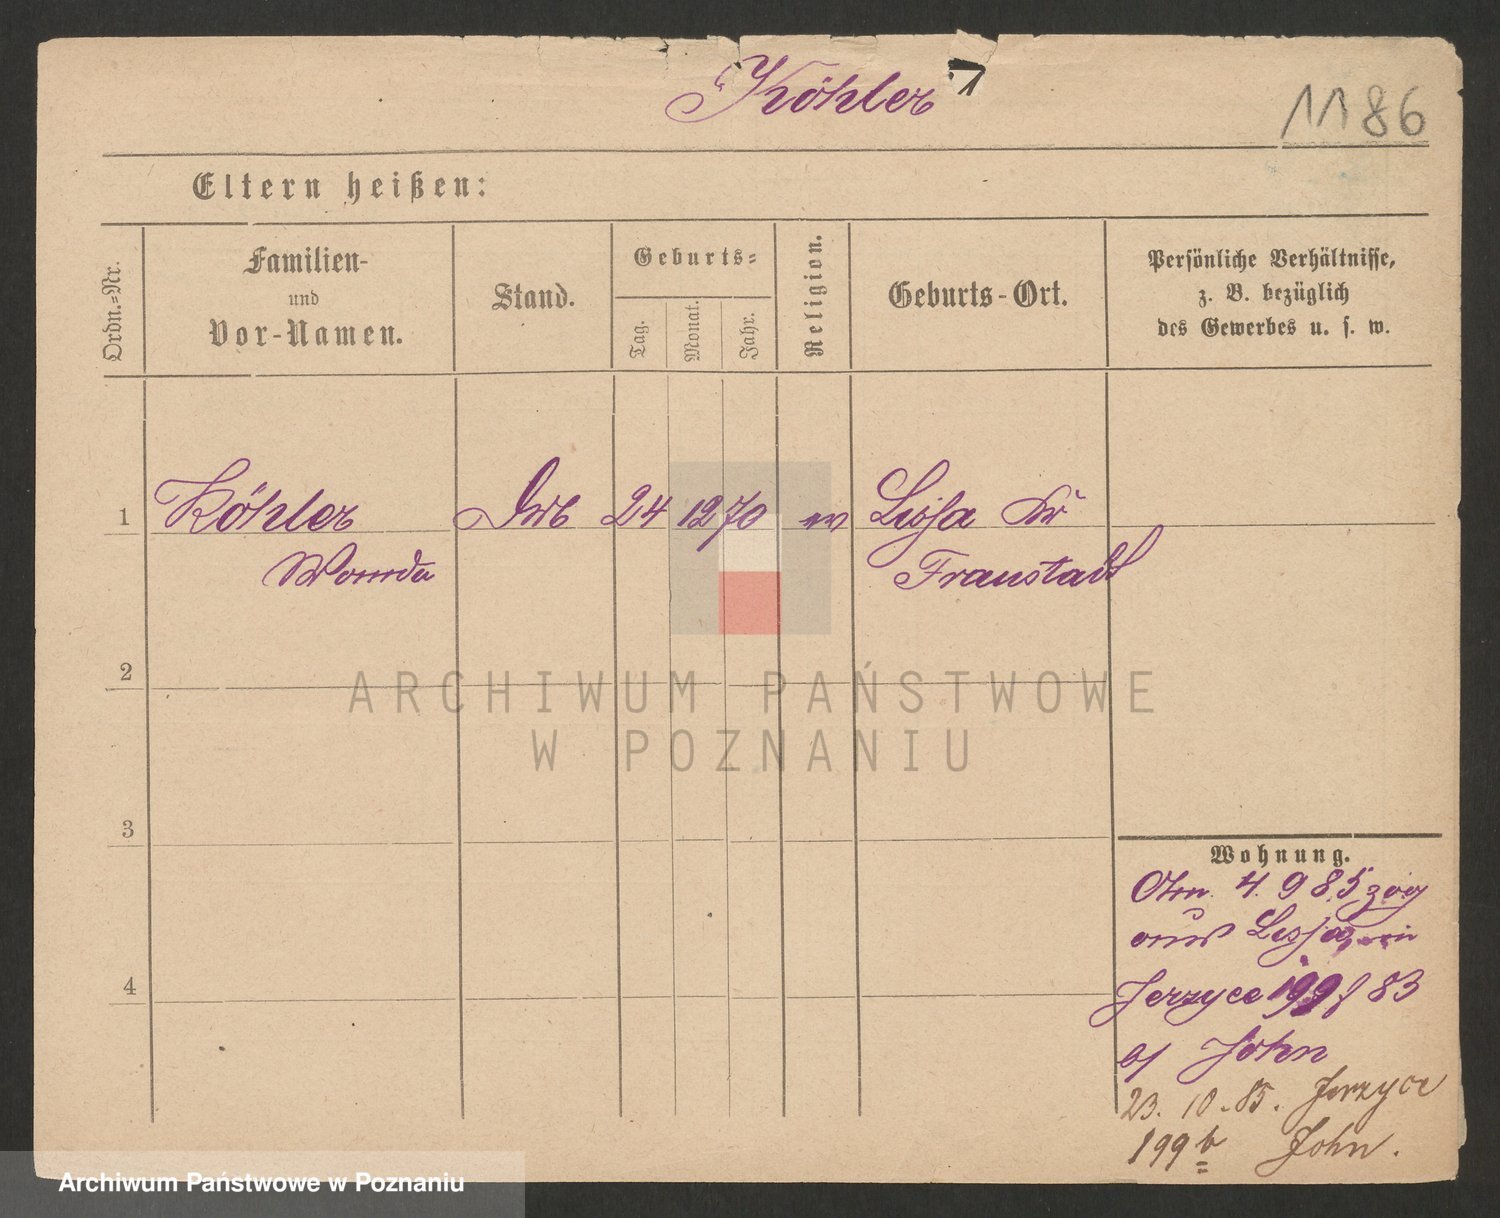 Köhler 1
1186
Eltern heißen:
Ordn.=Nr.
Familien-
und
Vor-Namen.
Stand.
Geburts=
Tag.
Monat.
Jahr.
Religion.
Geburts-Ort.
Persönliche Verhältnisse,
z. B. bezüglich
des Gewerbes u. s. w.
1 Köhler 24 12 70 ev Lissa Kr
Wanda Fraustadt
2
ARCHIWUM PAŃSTWOWE
W POZNANIU
3
Wohnung.
4. 9 85 zog
aus Lissa
4
Jerzyce 199 83
b/ John
23. 10. 85. Jerzyce
199 b John.
Archiwum Państwowe w Poznaniu